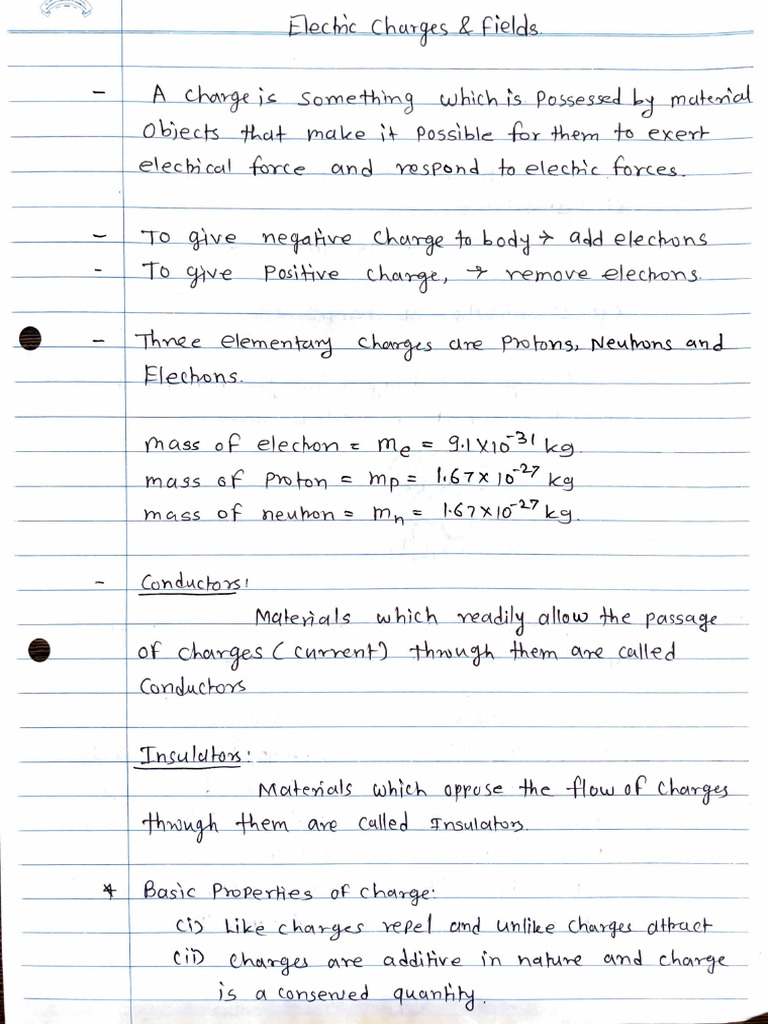 Electric Charges & Fields.
- A charge is something which is possessed by material
objects that make it possible for them to exert
electrical force and respond to electric forces.
- To give negative charge to body → add electrons
- To give Positive charge, → remove electrons.
- Three elementary charges are Protons, Neutrons and
Electrons.
mass of electron = me = 9.1×10^-31 kg.
mass of proton = mp = 1.67×10^-27 kg
mass of neutron = mn = 1.67×10^-27 kg.
- Conductors:
Materials which readily allow the passage
of charges (current) through them are called
Conductors
Insulators:
Materials which oppose the flow of charges
through them are called Insulators.
* Basic Properties of charge:
(i) Like charges repel and unlike charges attract
(ii) charges are additive in nature and charge
is a conserved quantity.